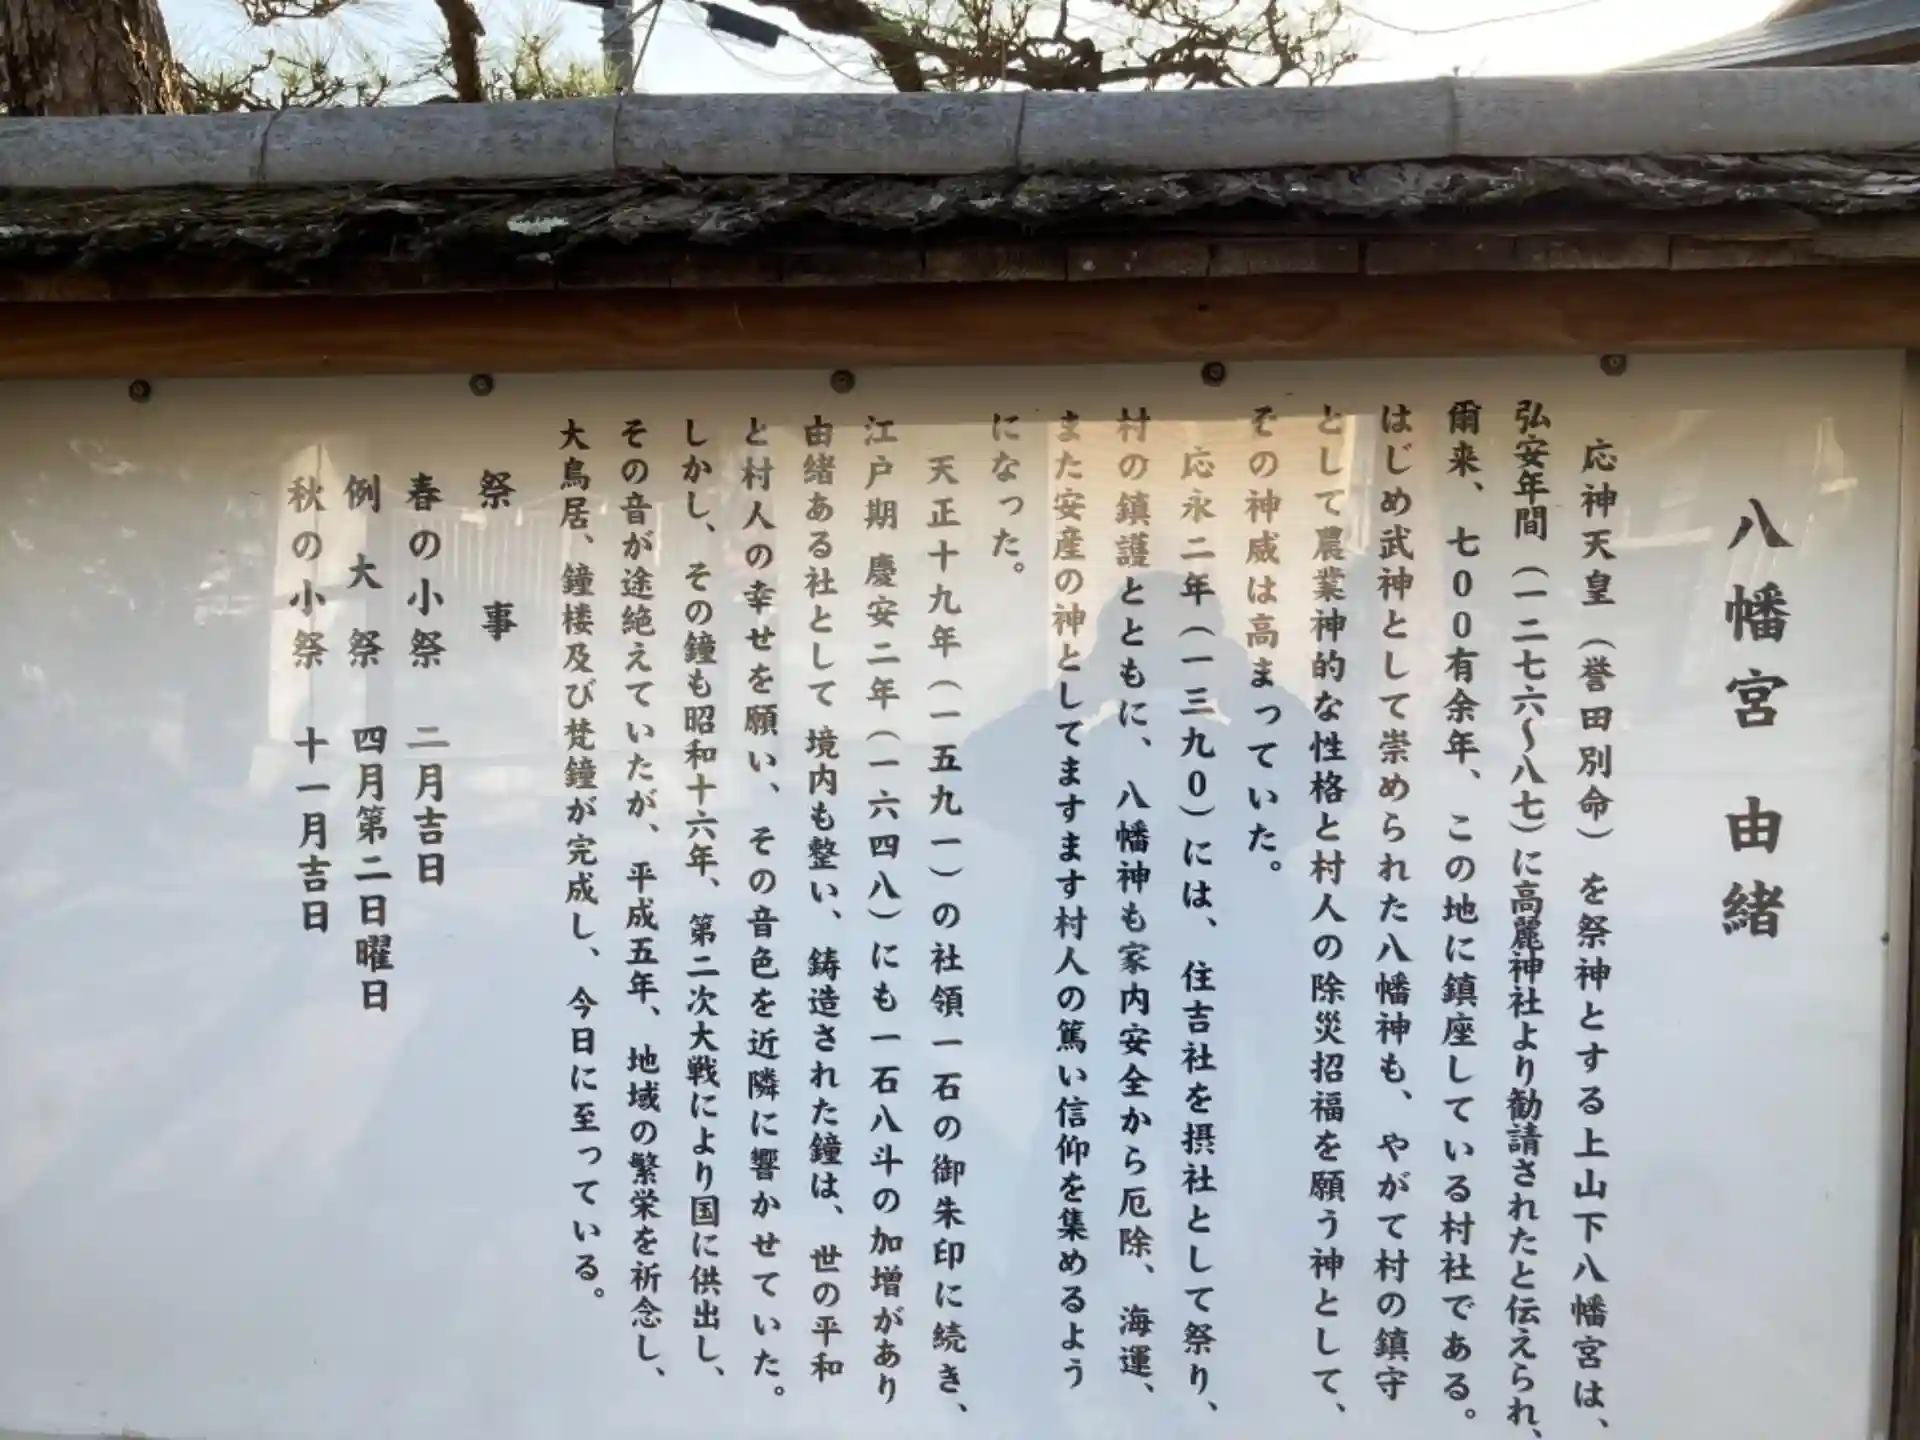 八幡宮由緒
応神天皇（誉田別命）を祭神とする上山下八幡宮は、
弘安年間（一二七六〜八七）に高麗神社より勧請されたと伝えられ、
爾来、七00有余年、この地に鎮座している村社である。
はじめ武神として崇められた八幡神も、やがて村の鎮守
として農業神的な性格と村人の除災招福を願う神として、
その神威は高まっていた。
応永二年（一三九0）には、住吉社を摂社として祭り、
村の鎮護とともに、八幡神も家内安全から厄除、海運、
また安産の神としてますます村人の篤い信仰を集めるよう
になった。
天正十九年（一五九一）の社領一石の御朱印に続き、
江戸期慶安二年（一六四八）にも一石八斗の加増があり
由緒ある社として境内も整い、鋳造された鐘は、世の平和
と村人の幸せを願い、その音色を近隣に響かせていた。
しかし、その鐘も昭和十六年、第二次大戦により国に供出し、
その音が途絶えていたが、平成五年、地域の繁栄を祈念し、
大鳥居、鐘楼及び梵鐘が完成し、今日に至っている。
祭事
春の小祭 二月吉日
例大祭 四月第二日曜日
秋の小祭 十一月吉日